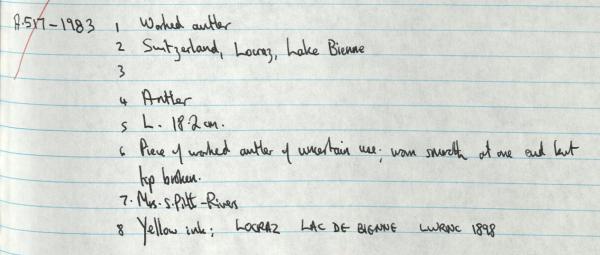 A.517-1983 1 Worked antler
2 Switzerland, Locraz, Lake Bienne
3
4 Antler
5 L. 18.2 cm.
6 Piece of worked antler of uncertain use; worn smooth at one end but
top broken.
7. Mrs. S. Pitt-Rivers
8 Yellow ink; LOCRAZ LAC DE BIENNE 1898